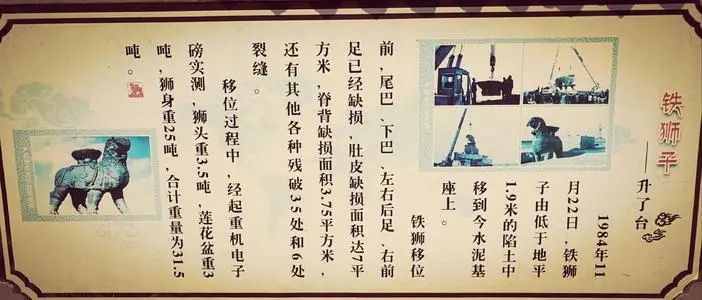 铁狮子
——升了台
1984年11
月22日，铁狮
子由低于地平
1.9米的陷土中
移到今水泥基
座上。
铁狮移位
前，尾巴、下巴、左右后足、右前
足已经缺损，肚皮缺损面积达7平
方米，脊背缺损面积3.75平方米，
还有其他各种残破35处和6处
裂缝。
移位过程中，经起重机电子
磅实测，狮头重3.5吨，莲花盆重3
吨，狮身重25吨，合计重量为31.5
吨。